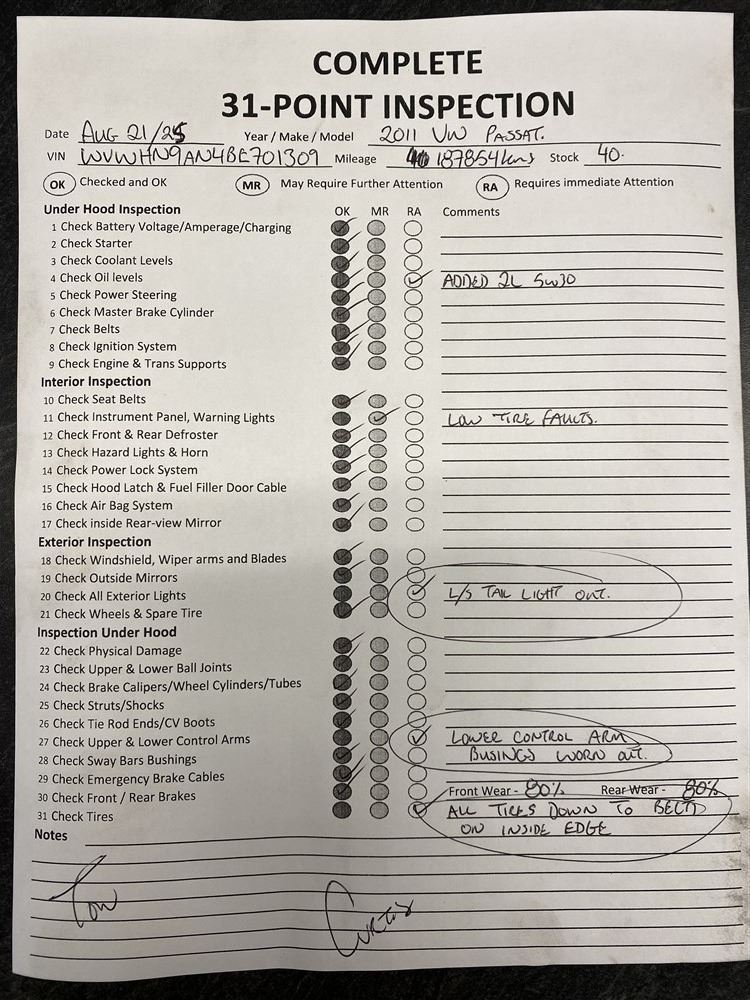 COMPLETE
31-POINT INSPECTION
Date AUG 21/25 Year / Make / Model 2011 VW PASSAT.
VIN WVWHN9AN4BE701309 Mileage 187854 kms Stock 40.
OK Checked and OK MR May Require Further Attention RA Requires immediate Attention
Under Hood Inspection OK MR RA Comments
1 Check Battery Voltage/Amperage/Charging
2 Check Starter
3 Check Coolant Levels
4 Check Oil levels ADDED 2L 5W30
5 Check Power Steering
6 Check Master Brake Cylinder
7 Check Belts
8 Check Ignition System
9 Check Engine & Trans Supports
Interior Inspection
10 Check Seat Belts
11 Check Instrument Panel, Warning Lights LOW TIRE FAULTS.
12 Check Front & Rear Defroster
13 Check Hazard Lights & Horn
14 Check Power Lock System
15 Check Hood Latch & Fuel Filler Door Cable
16 Check Air Bag System
17 Check inside Rear-view Mirror
Exterior Inspection
18 Check Windshield, Wiper arms and Blades
19 Check Outside Mirrors
20 Check All Exterior Lights L/S TAIL LIGHT OUT.
21 Check Wheels & Spare Tire
Inspection Under Hood
22 Check Physical Damage
23 Check Upper & Lower Ball Joints
24 Check Brake Calipers/Wheel Cylinders/Tubes
25 Check Struts/Shocks
26 Check Tie Rod Ends/CV Boots
27 Check Upper & Lower Control Arms LOWER CONTROL ARM
28 Check Sway Bars Bushings BUSINGS WORN OUT.
29 Check Emergency Brake Cables
30 Check Front / Rear Brakes Front Wear - 80% Rear Wear - 80%
31 Check Tires ALL TIRES DOWN TO BELTD
ON INSIDE EDGE
Notes
Tom
Curtis